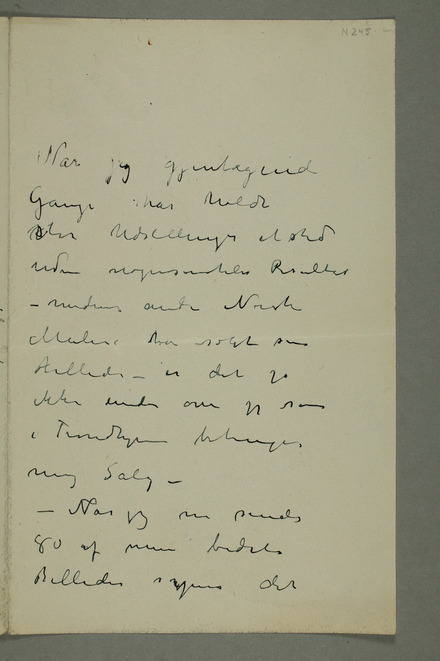 N 245
Når jeg gjentagende
Gange har holdt
stor Udstillinger et sted
uden nogensomhelst Resultat
– medens andre Norske
Malere har solgt sine
Billeder – er det jo
ikke under om jeg som
i Trondhjem betinger
mig Salg –
– Når jeg nu sender
80 af mine bedste
Billeder synes det